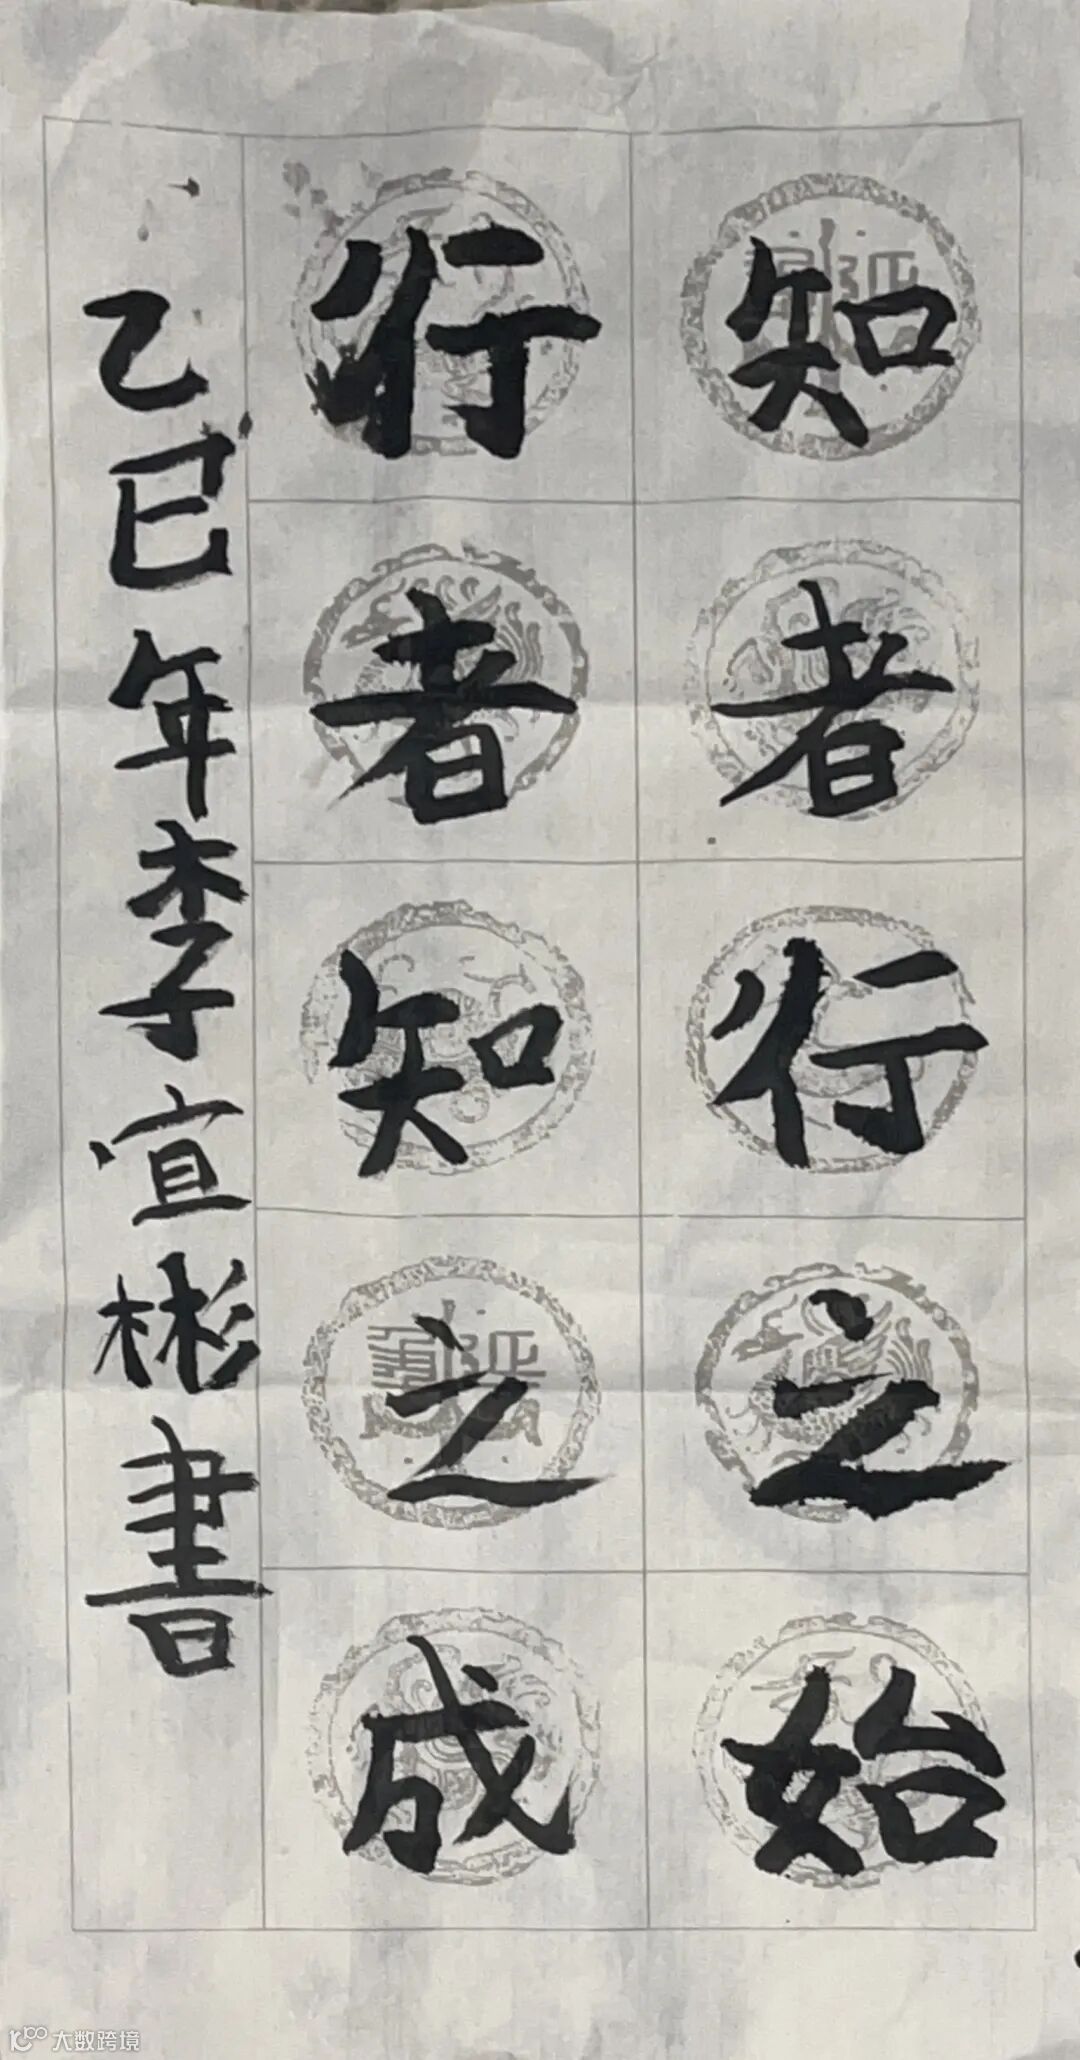 知者行之始
行者知之成
乙巳年李宣彬書
大数跨境